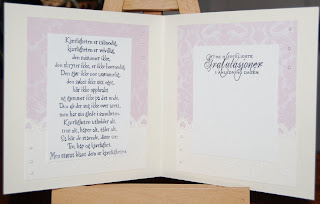 Kjærligheten er tålmodig,
kjærligheten er velvillig,
den misunner ikke,
den skryter ikke, er ikke hovmodig.
Den gjør ikke noe usømmelig,
den søker ikke sitt eget,
blir ikke oppbrakt
og gjemmer ikke på det onde.
Den gleder seg ikke over urett,
men har sin glede i sannheten.
Kjærligheten utholder alt,
tror alt, håper alt, tåler alt.
Så blir de stående, disse tre:
Tro, håp og kjærlighet.
Men størst blant dem er kjærligheten.
DE HJERTELIGSTE
Gratulasjoner
I ANLEDNING DAGEN